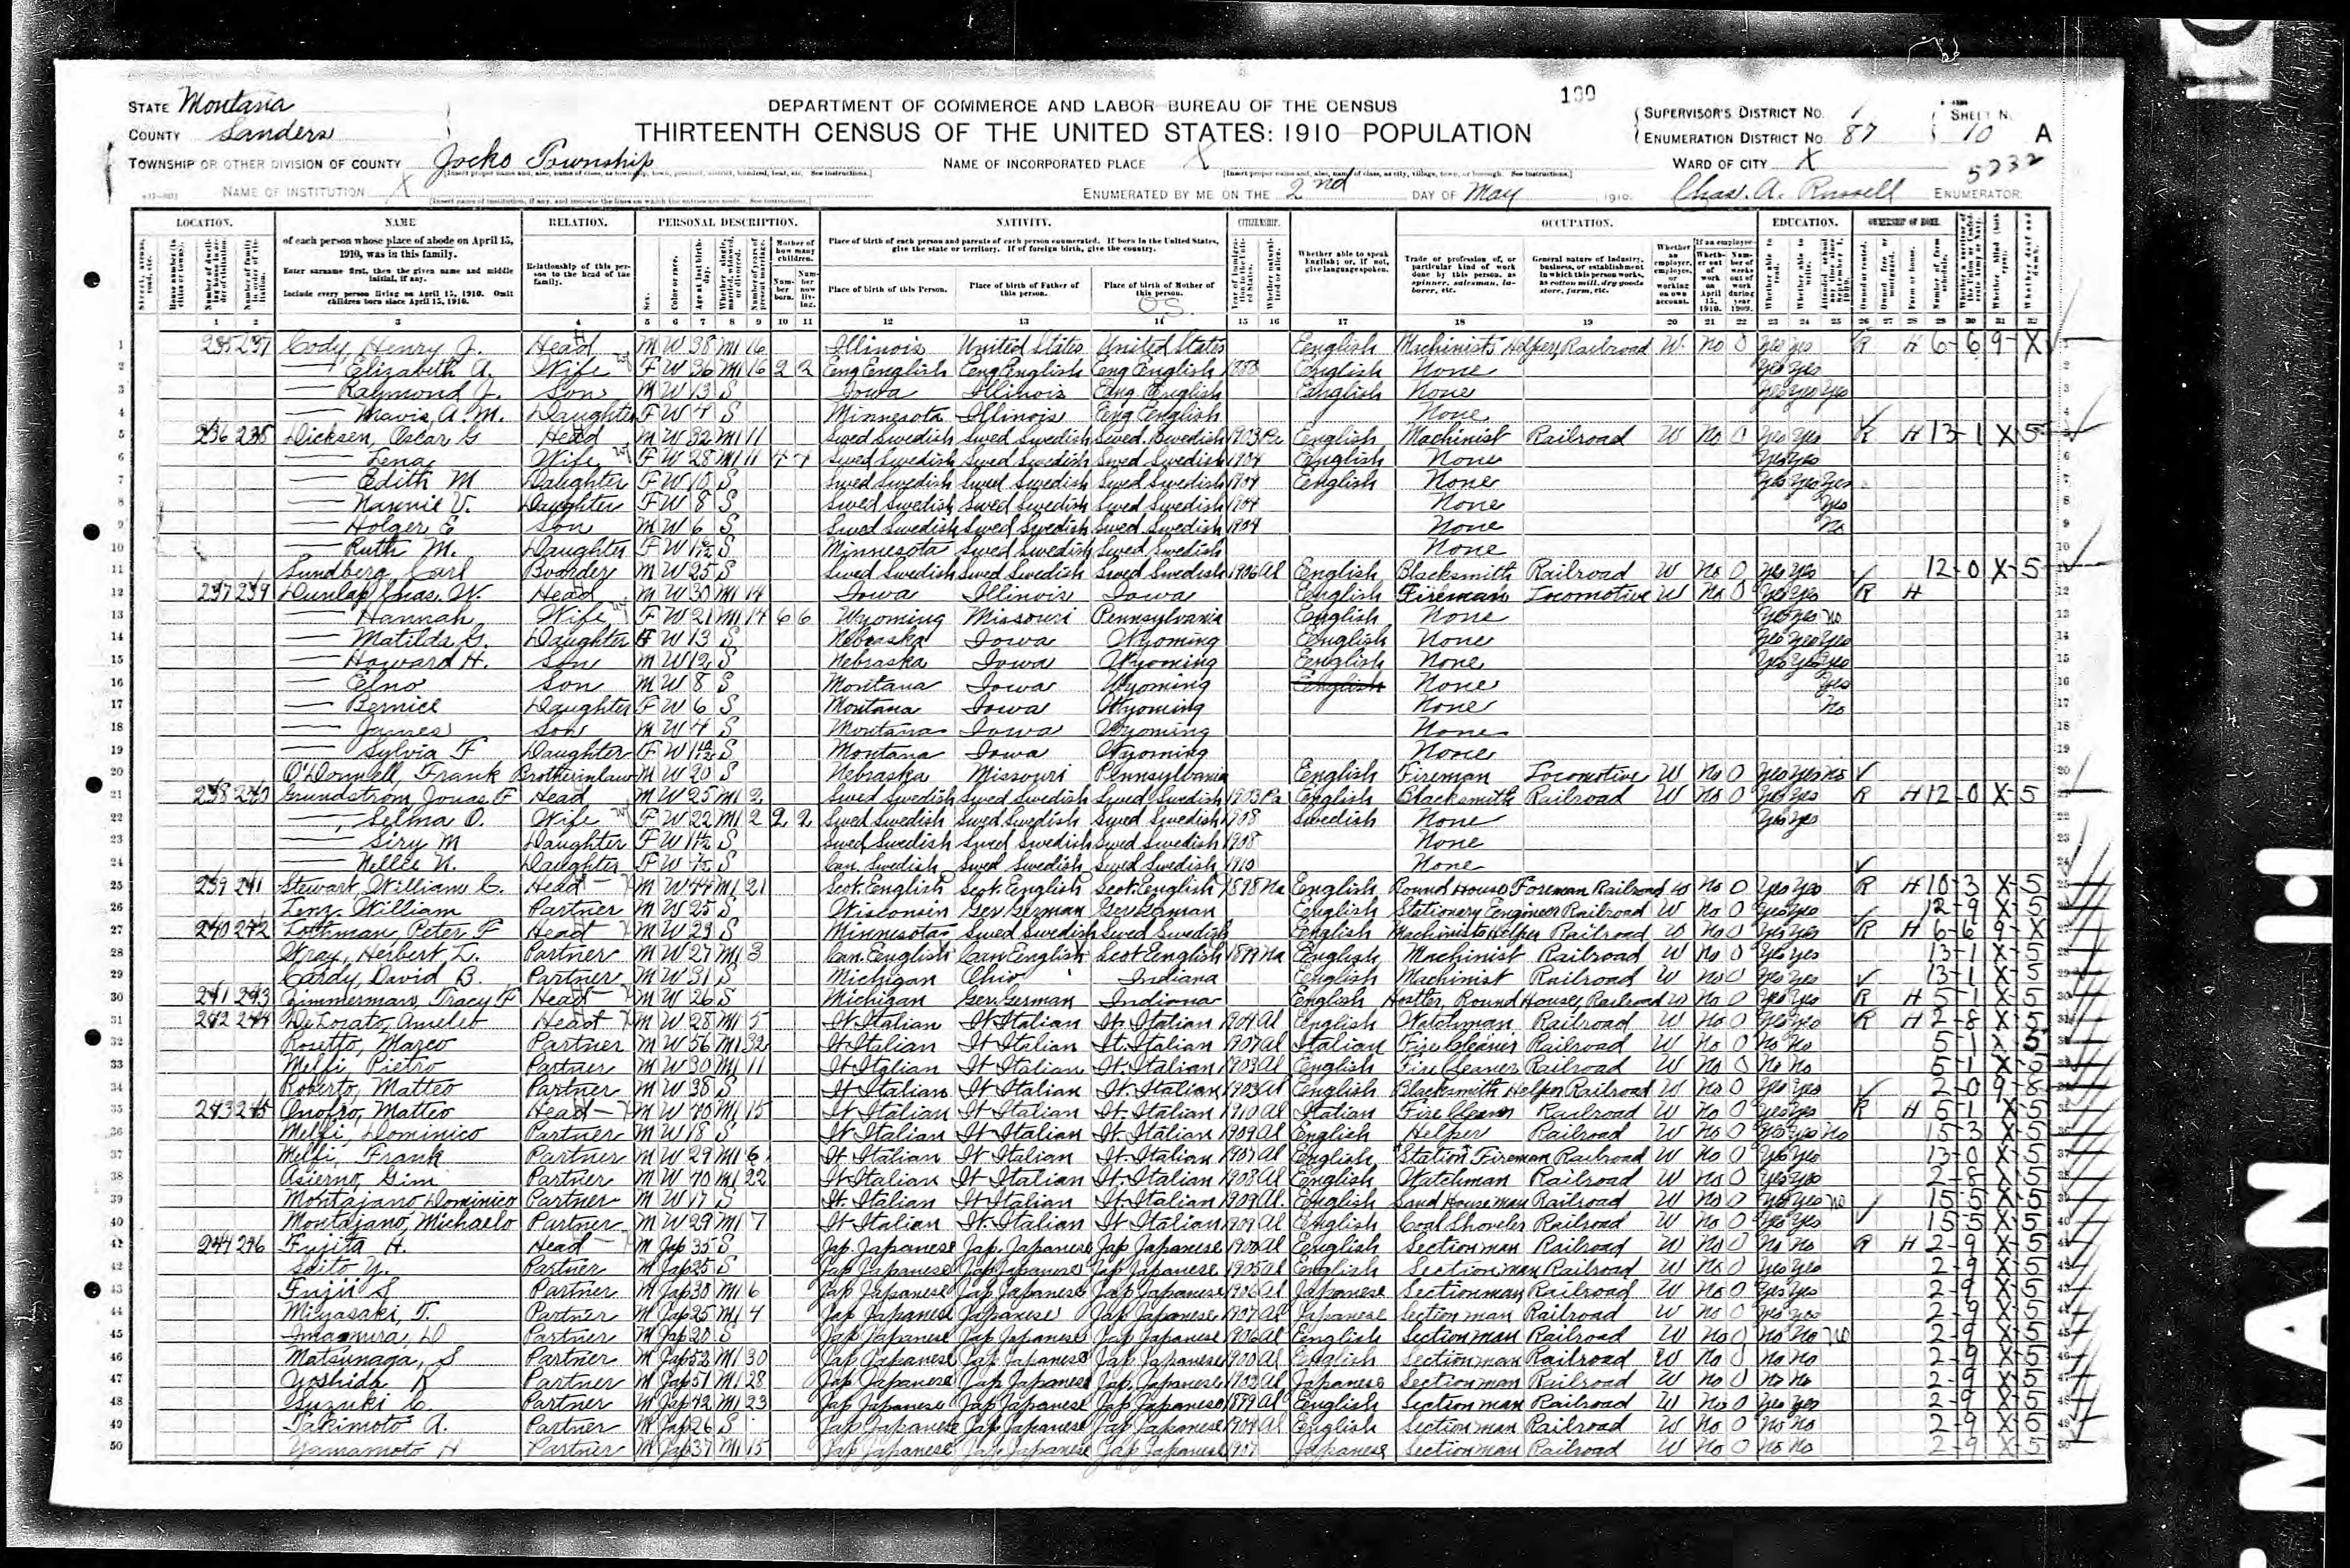 199
STATE Montana
COUNTY Sanders
DEPARTMENT OF COMMERCE AND LABOR—BUREAU OF THE CENSUS
THIRTEENTH CENSUS OF THE UNITED STATES: 1910—POPULATION
SUPERVISOR'S DISTRICT NO. 1
ENUMERATION DISTRICT NO. 87
SHEET NO. 10 A
5232
TOWNSHIP OR OTHER DIVISION OF COUNTY Jocko Township
NAME OF INCORPORATED PLACE X
WARD OF CITY X
NAME OF INSTITUTION X
ENUMERATED BY ME ON THE 2nd DAY OF May, 1910. Chas. A. Russell ENUMERATOR
LOCATION. NAME RELATION. PERSONAL DESCRIPTION. NATIVITY. CITIZENSHIP. OCCUPATION. EDUCATION. OWNERSHIP OF HOME.
1 2 3 4 5 6 7 8 9 10 11 12 13 14 15 16 17 18 19 20 21 22 23 24 25 26 27 28 29 30 31 32
1 235 237 Cody, Henry J. Head M W 38 M1 16 Illinois United States United States English Machinists Helper Railroad W No 0 Yes Yes R H 6-6 9-X
2 — Elizabeth A. Wife F W 36 M1 16 2 2 Eng English Eng English Eng English 1888 English None Yes Yes
3 — Raymond J. Son M W 13 S Iowa Illinois Eng English English None Yes Yes Yes
4 — Mavis A. M. Daughter F W 4 S Minnesota Illinois Eng English None
5 236 238 Dicksen, Oscar G Head M W 32 M1 11 Swed Swedish Swed Swedish Swed Swedish 1903 Pa English Machinist Railroad W No 0 Yes Yes R H 13-1 X-5
6 — Lena Wife F W 28 M1 11 4 4 Swed Swedish Swed Swedish Swed Swedish 1904 English None Yes Yes
7 — Edith M Daughter F W 10 S Swed Swedish Swed Swedish Swed Swedish 1904 English None Yes Yes Yes
8 — Nannie V. Daughter F W 8 S Swed Swedish Swed Swedish Swed Swedish 1904 None Yes
9 — Holger E Son M W 6 S Swed Swedish Swed Swedish Swed Swedish 1904 None No
10 — Ruth M. Daughter F W S Minnesota Swed Swedish Swed Swedish None
11 Sundberg, Carl Boarder M W 25 S Swed Swedish Swed Swedish Swed Swedish 1906 Al English Blacksmith Railroad W No 0 Yes Yes 12-0 X-5
12 237 239 Dunlap, Chas. W. Head M W 30 M1 14 Iowa Illinois Iowa English Fireman Locomotive W No 0 Yes Yes R H
13 — Hannah Wife F W 21 M1 14 6 6 Wyoming Missouri Pennsylvania English None Yes Yes No
14 — Matilda G. Daughter F W 13 S Nebraska Iowa Wyoming English None Yes Yes Yes
15 — Howard H. Son M W 12 S Nebraska Iowa Wyoming English None Yes Yes Yes
16 — Elno Son M W 8 S Montana Iowa Wyoming English None Yes
17 — Bernice Daughter F W 6 S Montana Iowa Wyoming None No
18 — James Son M W 4 S Montana Iowa Wyoming None
19 — Sylvia F Daughter F W S Montana Iowa Wyoming None
20 O'Donnell, Frank Brotherinlaw M W 20 S Nebraska Missouri Pennsylvania English Fireman Locomotive W No 0 Yes Yes No
21 238 240 Grundstrom, Jonas F Head M W 25 M1 2 Swed Swedish Swed Swedish Swed Swedish 1903 Pa English Blacksmith Railroad W No 0 Yes Yes R H 12-0 X-5
22 —, Selma O. Wife F W 22 M1 2 2 2 Swed Swedish Swed Swedish Swed Swedish 1908 Swedish None Yes Yes
23 — Siry M Daughter F W S Swed Swedish Swed Swedish Swed Swedish 1908 None
24 — Nellie N. Daughter F W S Can. Swedish Swed Swedish Swed Swedish 1910 None
25 239 241 Stewart, William C. Head M W 44 M1 21 Scot. English Scot. English Scot. English 1898 Na English Round House Foreman Railroad W No 0 Yes Yes R H 10-3 X-5
26 Lenz, William Partner M W 25 S Wisconsin Ger German Ger German English Stationary Engineer Railroad W No 0 Yes Yes 12-9 X-5
27 240 242 Lothman, Peter F Head M W 29 S Minnesota Swed Swedish Swed Swedish English Machinists Helper Railroad W No 0 Yes Yes R H 6-6 9-X
28 Wray, Herbert L. Partner M W 27 M1 3 Can. English Can English Scot English 1899 Na English Machinist Railroad W No 0 Yes Yes 13-1 X-5
29 Cardy, David B. Partner M W 31 S Michigan Ohio Indiana English Machinist Railroad W No 0 Yes Yes 13-1 X-5
30 241 243 Zimmerman, Tracy F Head M W 26 S Michigan Ger. German Indiana English Hostler, Round House, Railroad W No 0 Yes Yes R H 5-1 X-5
31 242 244 DeLorato, Ameleo Head M W 28 M1 5 It Italian It Italian It. Italian 1904 Al English Watchman Railroad W No 0 Yes Yes R H 2-8 X-5
32 Rosetto, Marco Partner M W 56 M1 32 It Italian It Italian It. Italian 1907 Al Italian Fire Cleaner Railroad W No 0 No No 5-1 X-5
33 Melfi, Pietro Partner M W 30 M1 11 It Italian It Italian It. Italian 1903 Al English Fire Cleaner Railroad W No 0 No No 5-1 X-5
34 Roberto, Matteo Partner M W 38 S It Italian It Italian It. Italian 1903 Al English Blacksmith Helper Railroad W No 0 Yes Yes 2-0 9-8
35 243 245 Onofro, Matteo Head M W 40 M1 15 It Italian It Italian It. Italian 1910 Al Italian Fire Cleaner Railroad W No 0 Yes Yes R H 5-1 X-5
36 Melfi, Dominico Partner M W 18 S It Italian It Italian It. Italian 1909 Al English Helper Railroad W No 0 Yes Yes No 15-3 X-5
37 Melfi, Frank Partner M W 29 M1 6 It Italian It Italian It. Italian 1907 Al English Station Fireman Railroad W No 0 Yes Yes 13-0 X-5
38 Asierno, Gim Partner M W 40 M1 22 It Italian It Italian It. Italian 1908 Al English Watchman Railroad W No 0 Yes Yes 2-8 X-5
39 Montajano Dominico Partner M W 17 S It. Italian It Italian It. Italian 1909 Al. English Sand House man Railroad W No 0 Yes Yes No 15-5 X-5
40 Montajano, Michaelo Partner M W 29 M1 7 It Italian It. Italian It Italian 1909 Al English Coal Shoveler Railroad W No 0 Yes Yes 15-5 X-5
41 244 246 Fujita H. Head M Jap 35 S Jap. Japanese Jap. Japanese Jap Japanese 1900 Al English Sectionman Railroad W No 0 No No R H 2-9 X-5
42 Saito Y. Partner M Jap 25 S Jap Japanese Jap Japanese Jap Japanese 1905 Al English Sectionman Railroad W No 0 Yes Yes 2-9 X-5
43 Fujii S Partner M Jap 30 M1 6 Jap Japanese Jap Japanese Jap Japanese 1906 Al Japanese Sectionman Railroad W No 0 Yes Yes 2-9 X-5
44 Miyasaki, T. Partner M Jap 25 M1 4 Jap Japanese Japanese Jap Japanese 1907 Al Japanese Section man Railroad W No 0 Yes Yes 2-9 X-5
45 Imamura, D Partner M Jap 20 S Jap Japanese Jap Japanese Jap Japanese 1906 Al English Section man Railroad W No 0 No No No 2-9 X-5
46 Matsunaga, S Partner M Jap 52 M1 30 Jap Japanese Jap Japanese Jap Japanese 1900 Al English Sectionman Railroad W No 0 No No 2-9 X-5
47 Yoshida K Partner M Jap 51 M1 28 Jap Japanese Jap Japanese Jap. Japanese 1902 Al Japanese Sectionman Railroad W No 0 No No 2-9 X-5
48 Suzuki C. Partner M Jap 42 M1 23 Jap Japanese Jap Japanese Jap Japanese 1899 Al English Section man Railroad W No 0 Yes Yes 2-9 X-5
49 Takimoto A. Partner M Jap 26 S Jap Japanese Jap Japanese Jap Japanese 1904 Al English Section man Railroad W No 0 No No 2-9 X-5
50 Yamamoto H Partner M Jap 37 M1 15 Jap Japanese Jap Japanese Jap Japanese 1907 Japanese Sectionman Railroad W No 0 No No 2-9 X-5